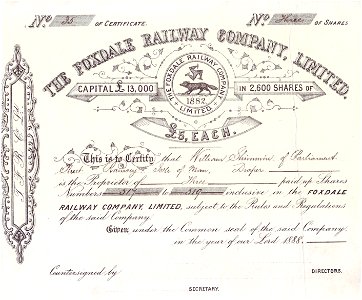 No 25 OF CERTIFICATE. No Three OF SHARES
THE FOXDALE RAILWAY COMPANY, LIMITED.
CAPITAL £ 13,000 IN 2,600 SHARES OF
THE FOXDALE RAILWAY COMPANY LIMITED
1882
£5, EACH.
This is to Certify that William of Parliament
Street Isle of Man, Draper
is the Proprietor of Three paid up Shares
Numbers to inclusive in the FOXDALE
RAILWAY COMPANY, LIMITED, subject to the Rules and Regulations
of the said Company.
Given under the Common Seal of the said Company,
in the year of our Lord 1888.
Countersigned by DIRECTORS.
SECRETARY.